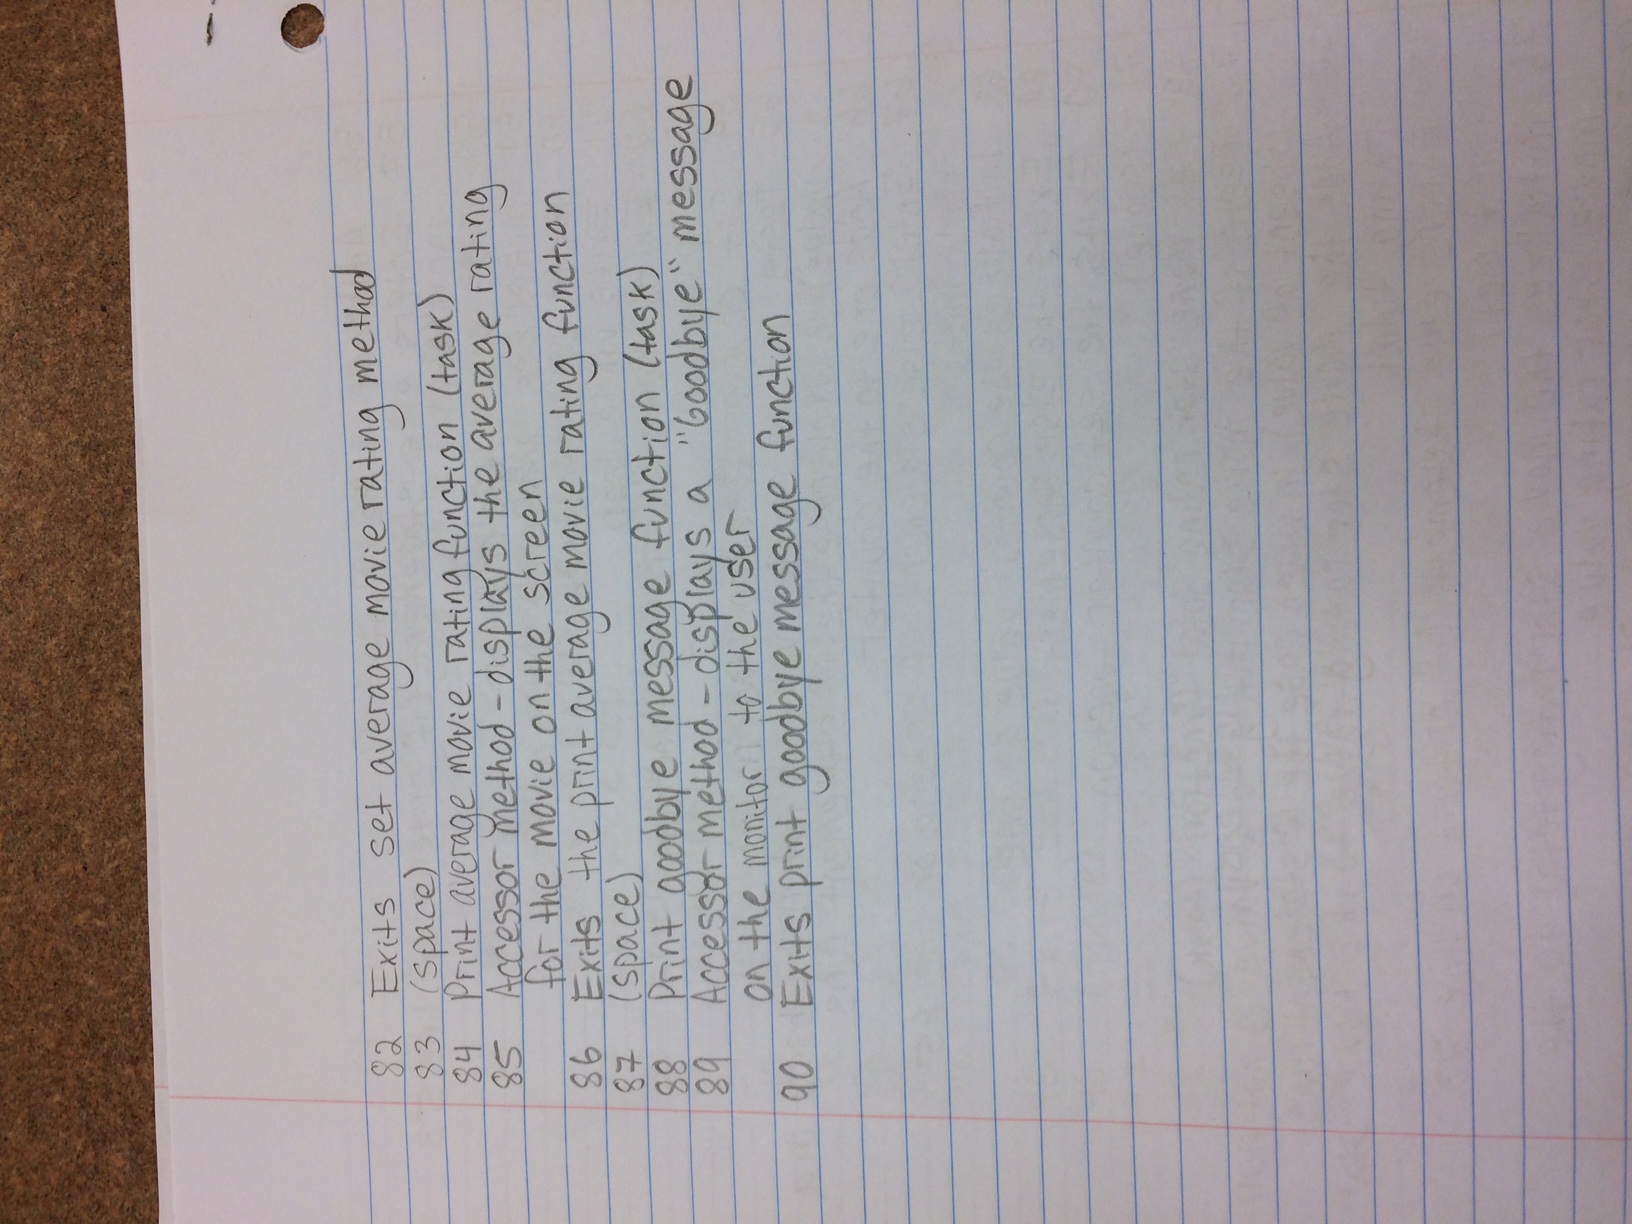 82 Exits set average movie rating method
83 (space)
84 Print average movie rating function (task)
85 Accessor method - displays the average rating
for the movie on the screen
86 Exits the print average movie rating function
87 (space)
88 Print goodbye message function (task)
89 Accessor method - displays a "Goodbye" message
on the monitor to the user
90 Exits print goodbye message function